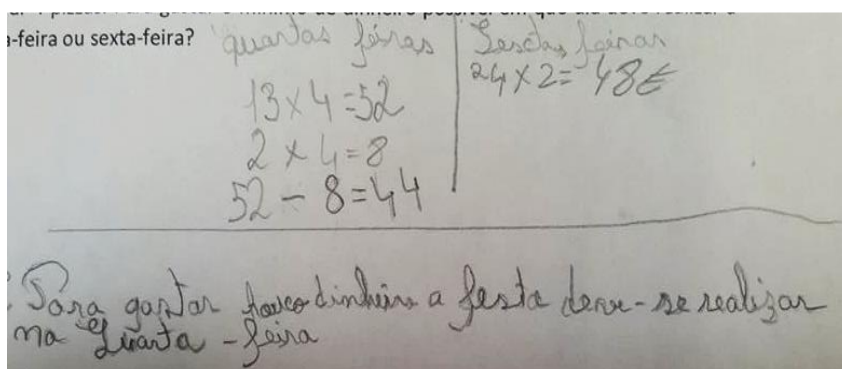 a-feira ou sexta-feira?
quartas feiras
13 x 4 = 52
2 x 4 = 8
52 - 8 = 44
Sesctas feiras
24 x 2 = 48€
Para gastar pouco dinheiro a festa deve-se realizar
na Quarta-feira